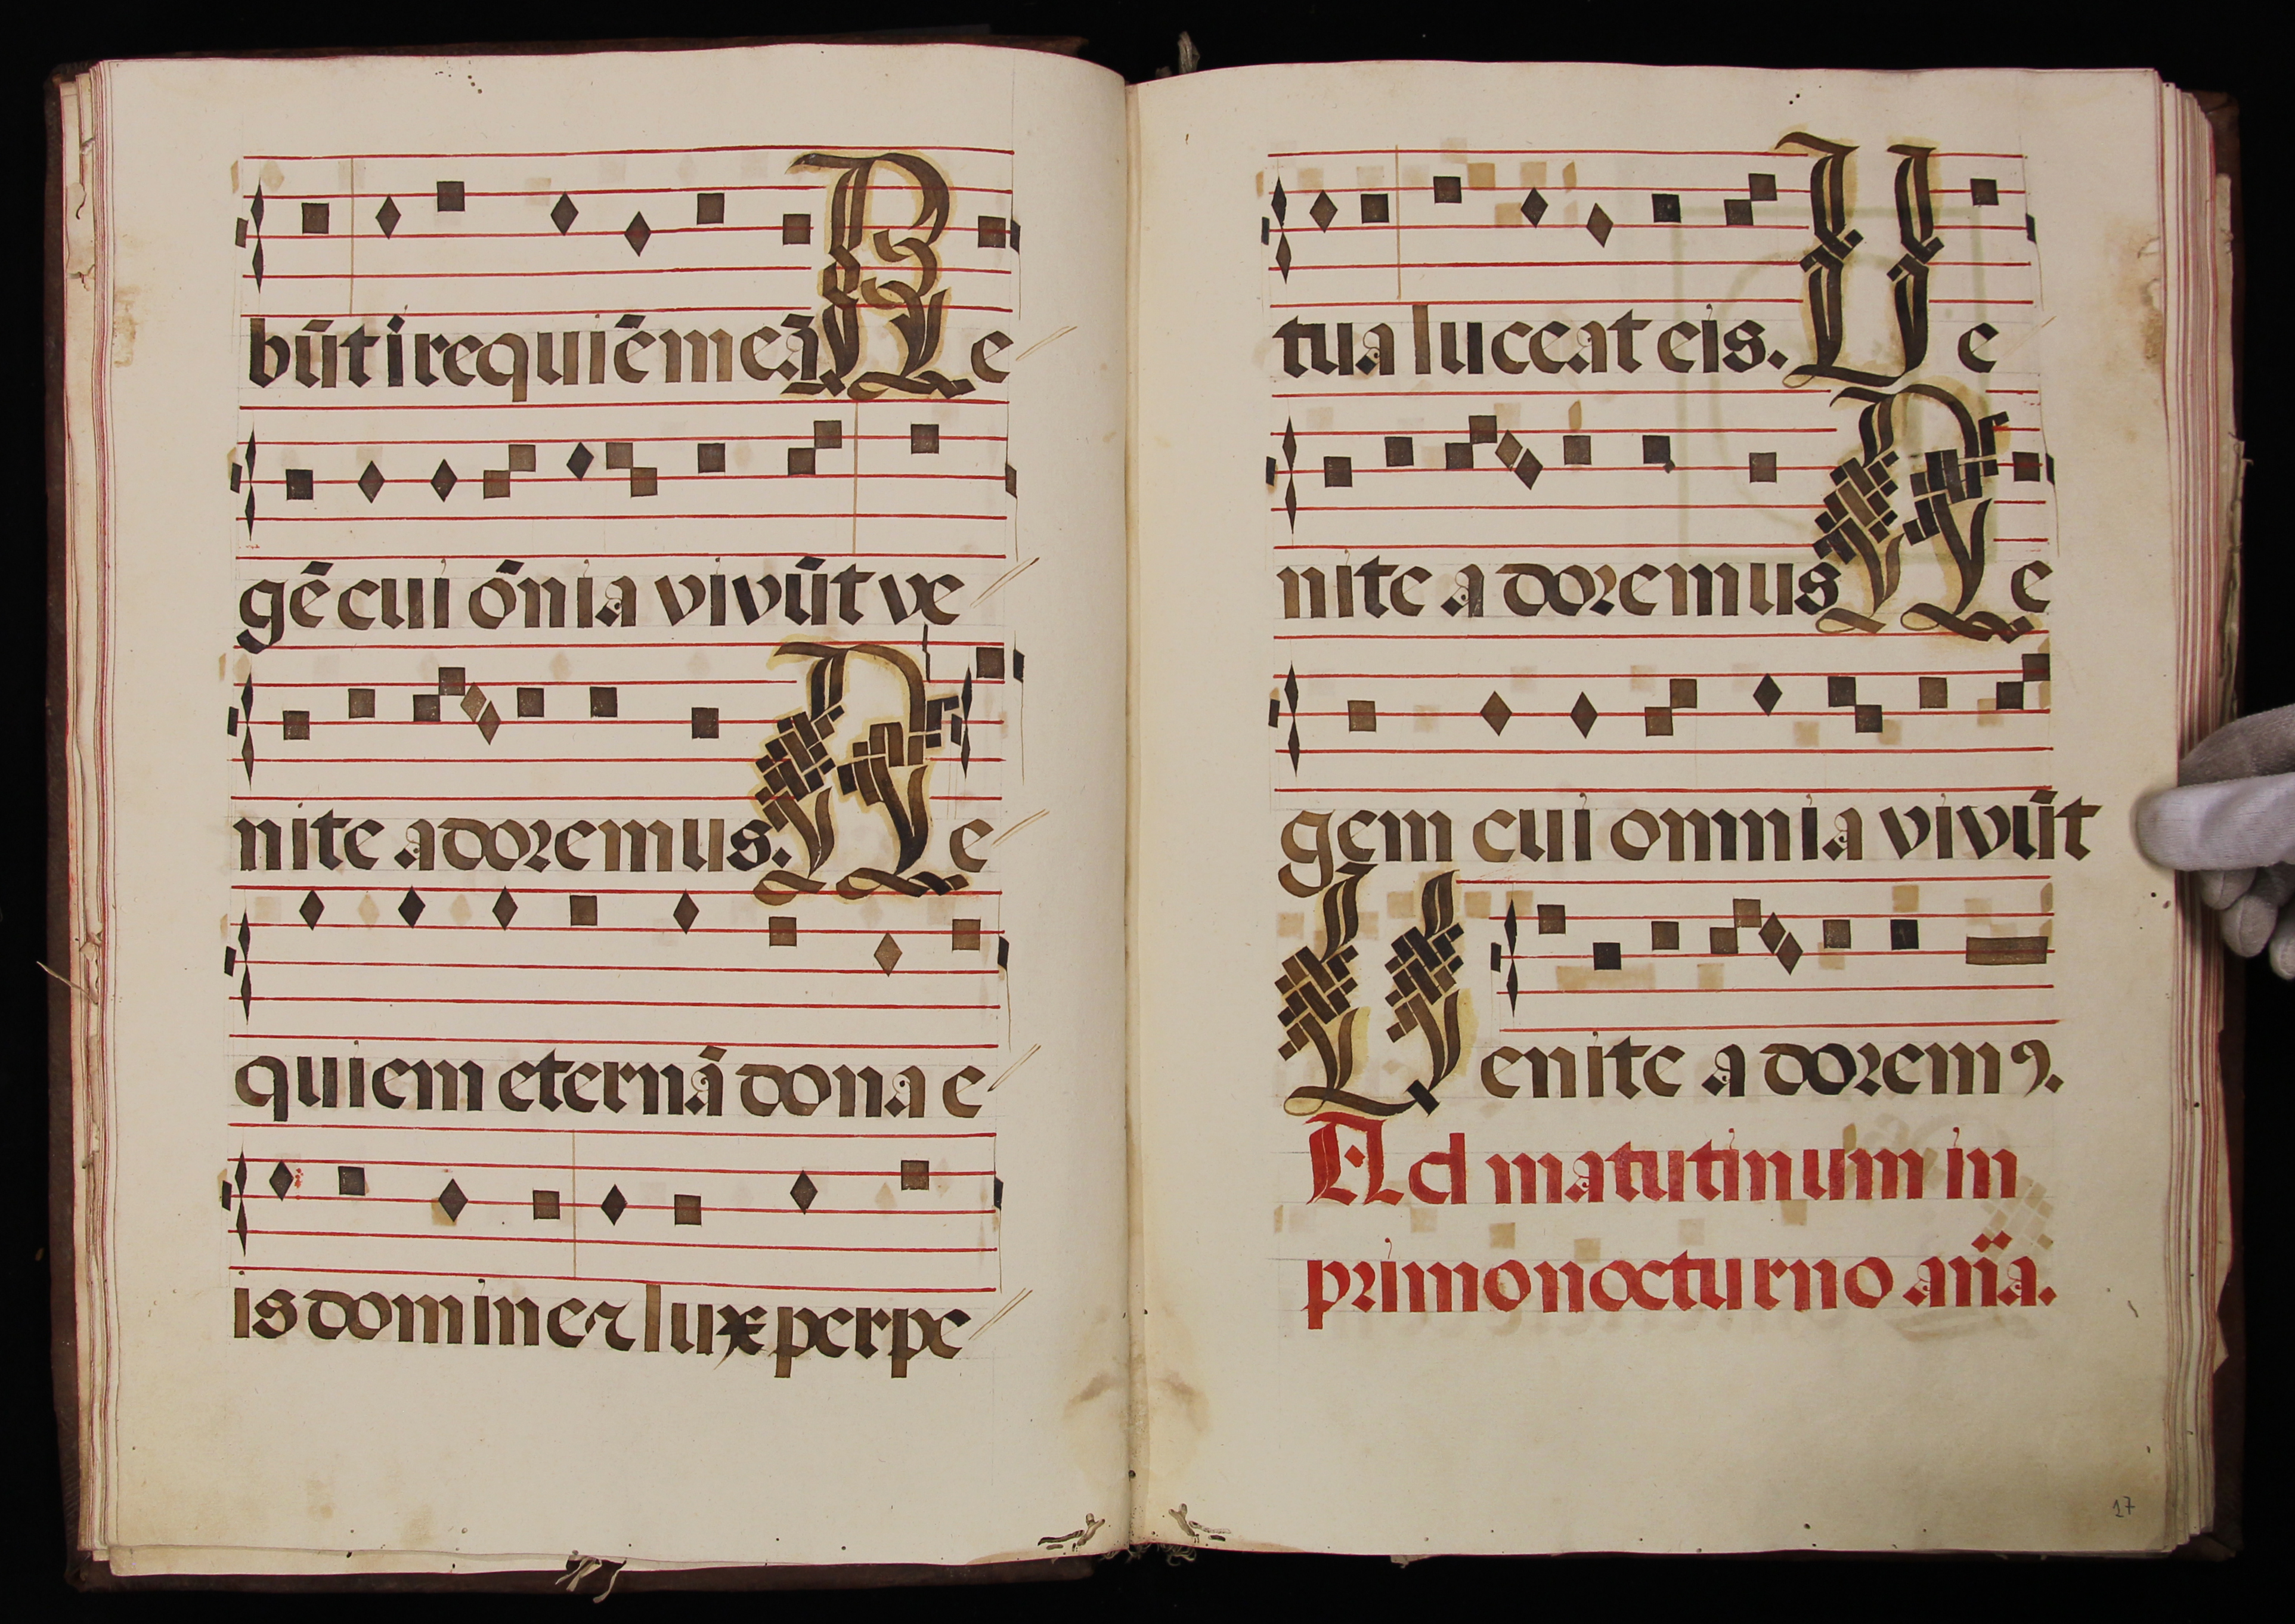 būt i requiē meā Re
gē cui ōnia vivūt ve
nite adoremus. Re
quiem eternā dona e
is domine ⁊ lux perpe
tua luceat eis. Ve
nite adoremus Re
gem cui omnia vivūt
Venite adoremꝰ.
Ad matutinum in
primo nocturno an̄a.
17